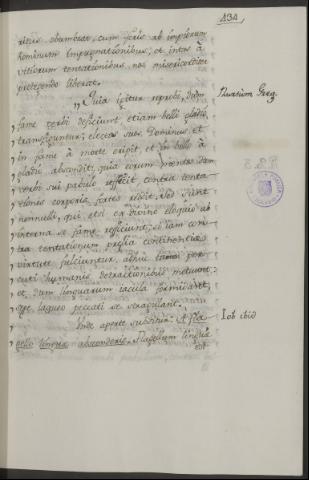 434
ritus obumbrat, cum foris ab impiorum
hominum impugnationibus, et intus à
vitiorum tentationibus nos misericorditer
protegendo liberat.
" Quia igitur reprobi, dum
" fame verbi deficiunt, etiam belli gladio
" transfiguntur; electos suos Dominus et
" in fame à morte eripit, et in bello à
" gladio abscondit; quia eorum mentes dum
" verbi sui pabulo reficit, contra tenta-
" tiones corporis fortes reddit. Sed sunt
" nonnulli, qui, etsi ex divino eloquio ab
" interna se fame reficiunt; et jam con-
" tra tentationum prælia continentiæ
" virtute fulciuntur, adhuc tamen per-
" cuti humanis detractionibus metuunt:
" et dum linguarum jacula formidant,
" sese laqueo peccati se strangulant.
Unde aperte subditur: A fla-
gello linguæ absconderis. Flagellum linguæ
est
Iob ibid